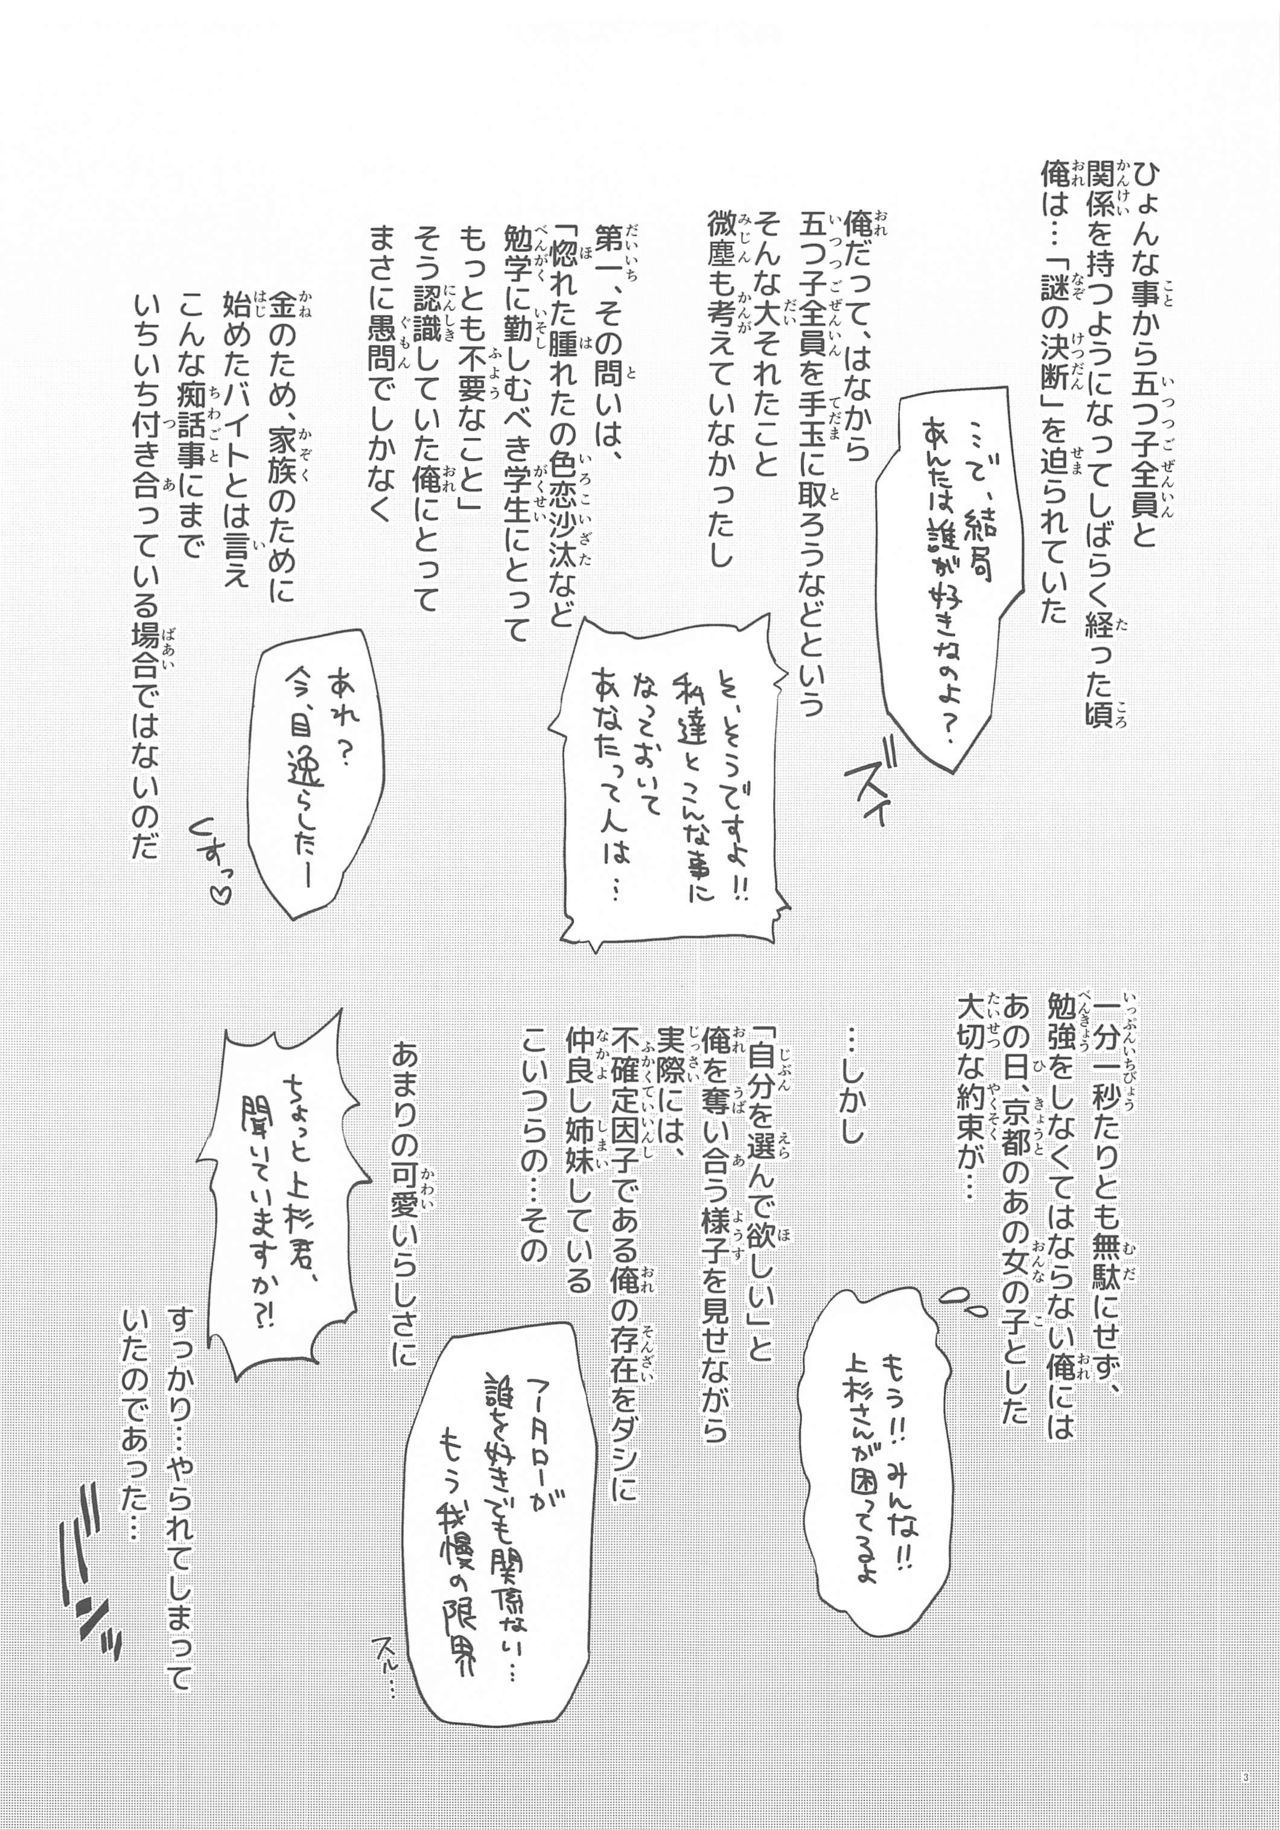 ひょんな事から五つ子全員と
関係を持つようになってしばらく経った頃
俺は…「謎の決断」を迫られていた
…で、結局
あんたは誰が好きなのよ?
ズイ
俺だって、はなから
五つ子全員を手玉に取ろうなどという
そんな大それたこと
微塵も考えていなかったし
そ、そうですよ!!
私達とこんな事に
なっておいて
あなたって人は…
第一、その問いは、
「惚れた腫れたの色恋沙汰など
勉学に勤しむべき学生にとって
もっとも不要なこと」
そう認識していた俺にとって
まさに愚問でしかなく
あれ?
今、目逸らしたー
くすっ♡
金のため、家族のために
始めたバイトとは言え
こんな痴話事にまで
いちいち付き合っている場合ではないのだ
一分一秒たりとも無駄にせず、
勉強をしなくてはならない俺には
あの日、京都のあの女の子とした
大切な約束が…
もう!!みんな!!
上杉さんが困ってるよ
…しかし
「自分を選んで欲しい」と
俺を奪い合う様子を見せながら
実際には、
不確定因子である俺の存在をダシに
仲良し姉妹している
こいつらの…その
フータローが
誰を好きでも関係ない…
もう我慢の限界
スル…
あまりの可愛いらしさに
ちょっと上杉君、
聞いていますか?!
すっかり…やられてしまって
いたのであった…